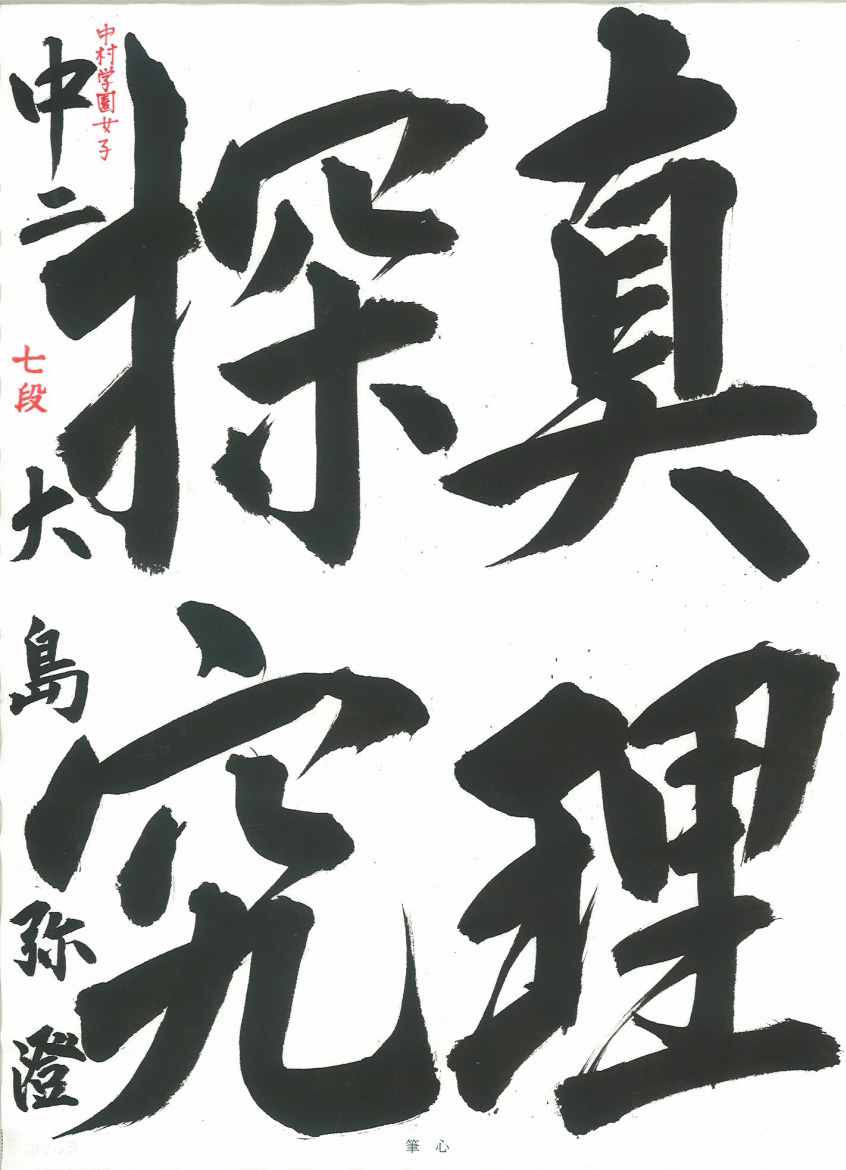 真理
探究
中村学園女子
中二 大島弥澄
七段
筆心